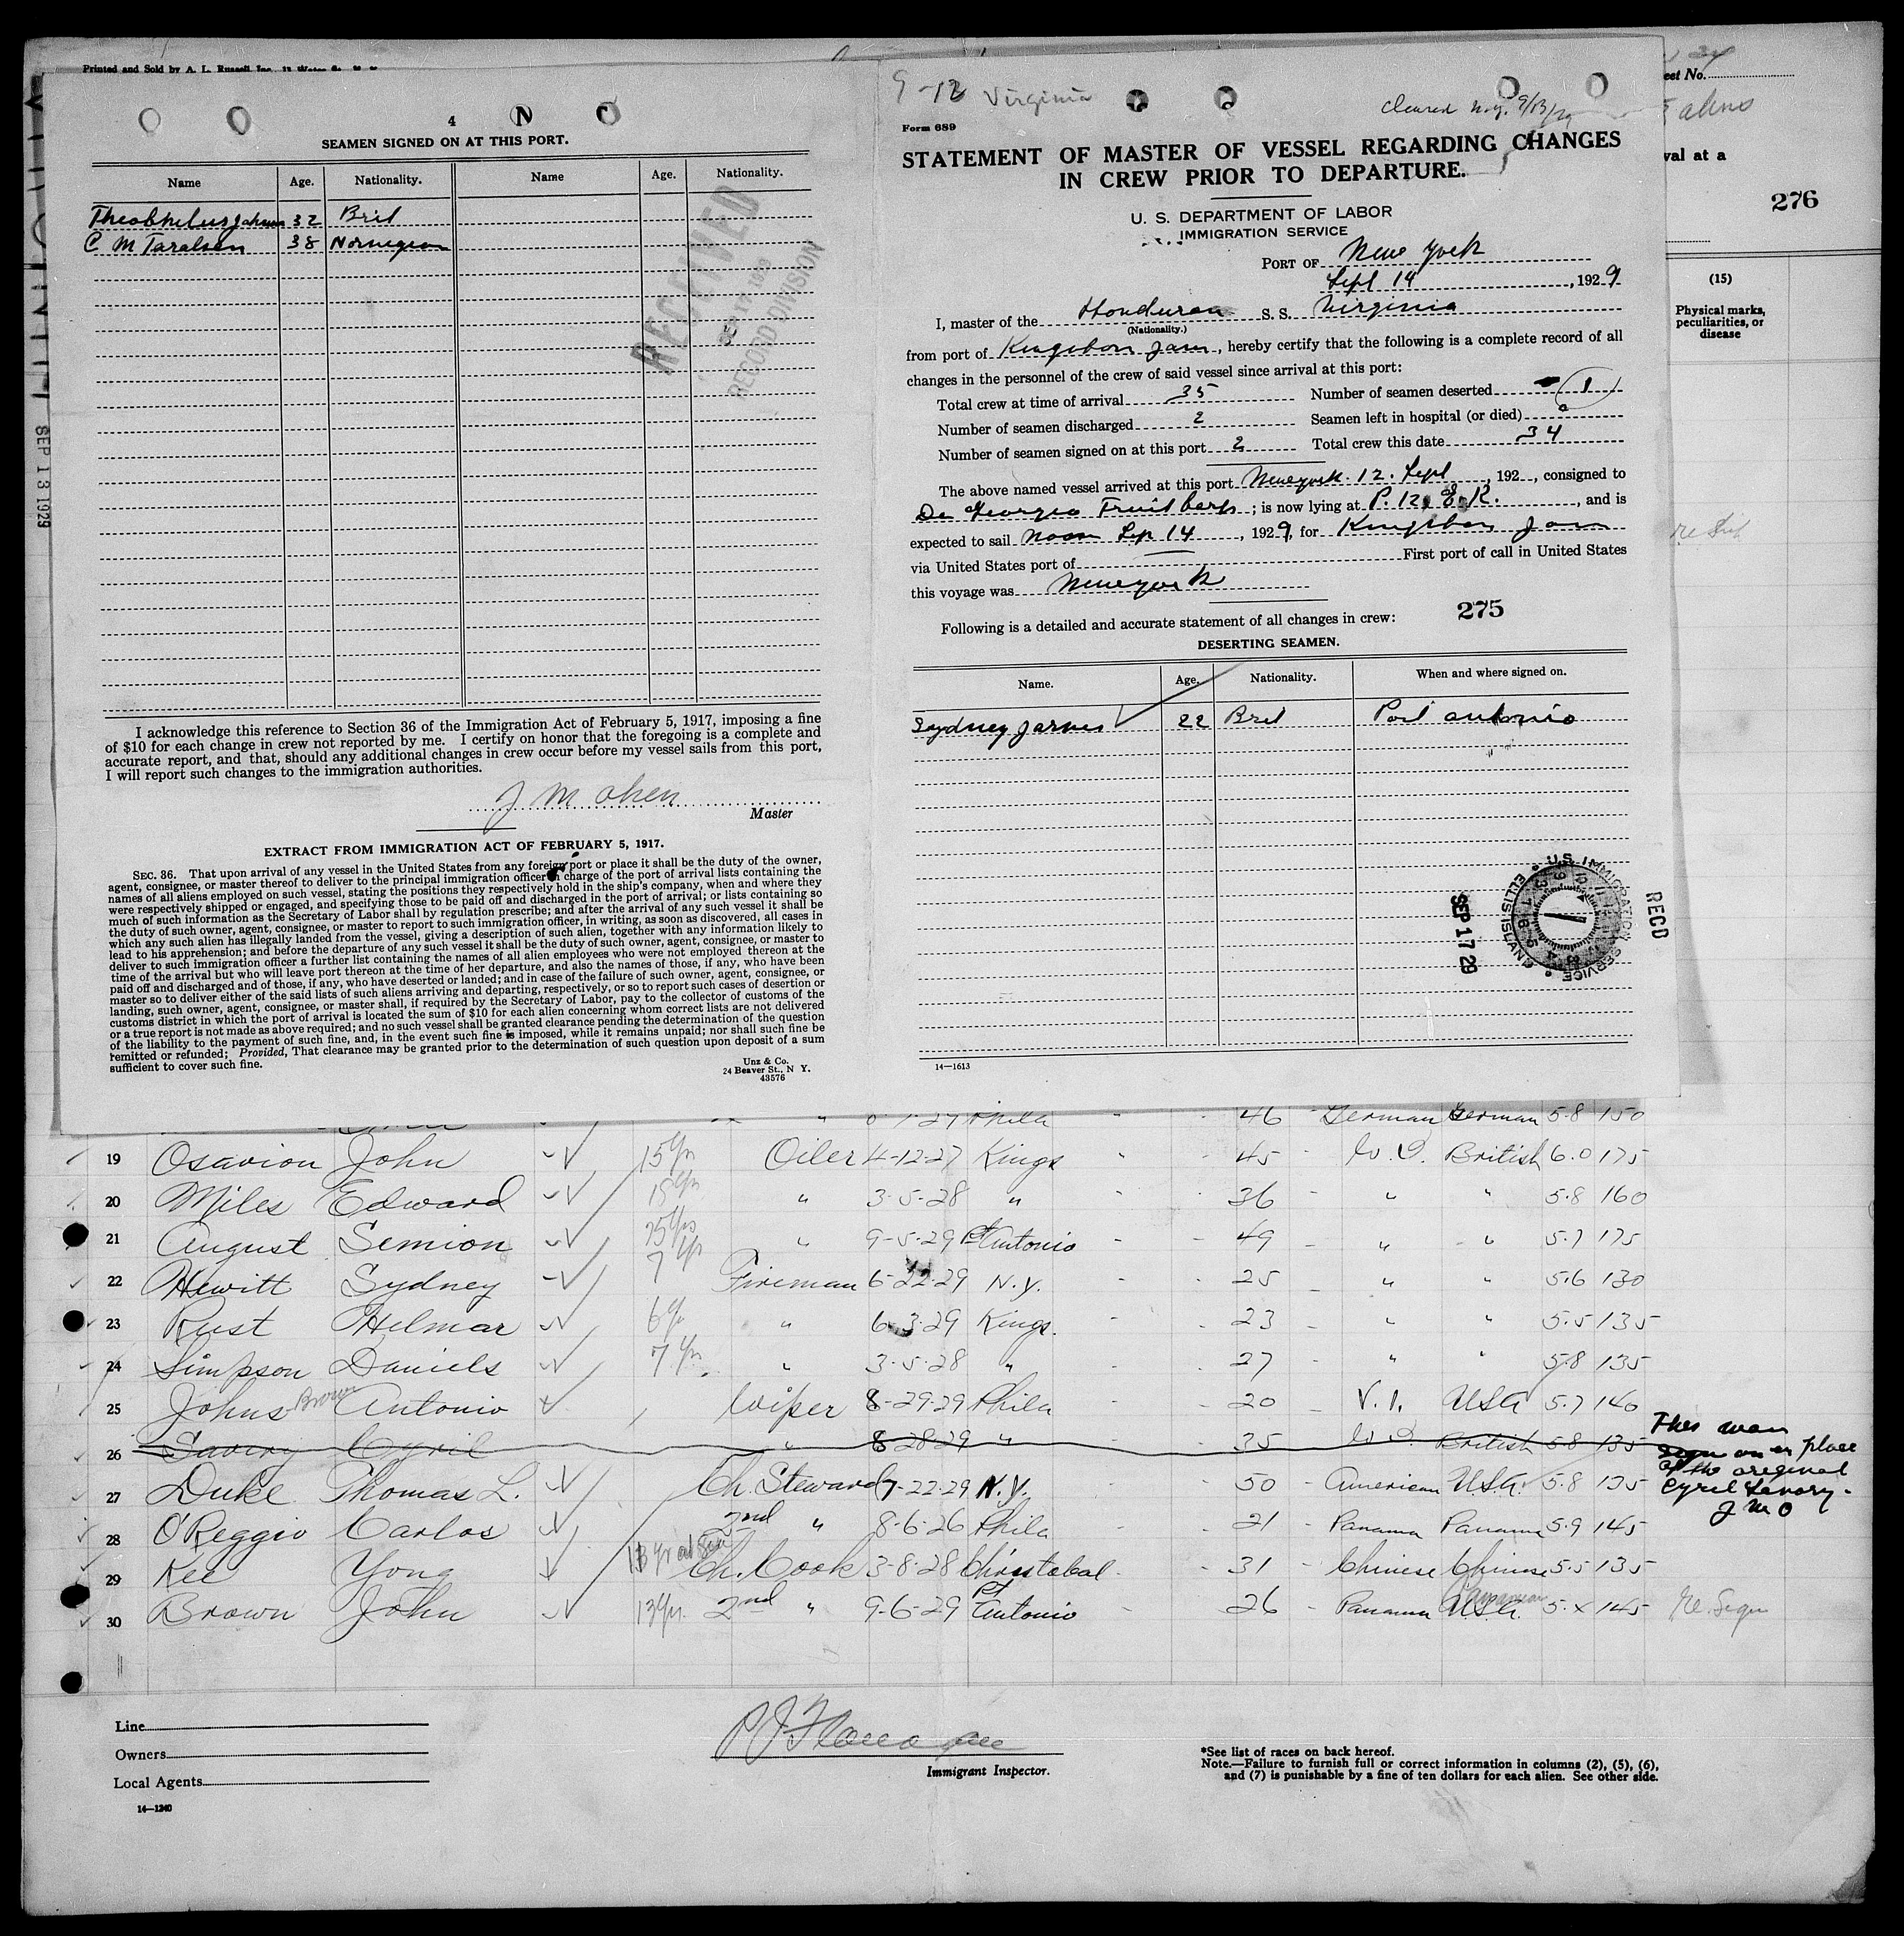 Printed and Sold by A. L. Russell Inc.
4
N
SEAMEN SIGNED ON AT THIS PORT.
Name Age. Nationality. Name Age. Nationality.
32 Brit
C M Taralsen 38 Norwegian
RECEIVED
RECORD DIVISION
SEP 13 1929
I acknowledge this reference to Section 36 of the Immigration Act of February 5, 1917, imposing a fine
of $10 for each change in crew not reported by me. I certify on honor that the foregoing is a complete and
accurate report, and that, should any additional changes in crew occur before my vessel sails from this port,
I will report such changes to the immigration authorities.
J M Olsen
Master
EXTRACT FROM IMMIGRATION ACT OF FEBRUARY 5, 1917.
SEC. 36. That upon arrival of any vessel in the United States from any foreign port or place it shall be the duty of the owner,
agent, consignee, or master thereof to deliver to the principal immigration officer in charge of the port of arrival lists containing the
names of all aliens employed on such vessel, stating the positions they respectively hold in the ship's company, when and where they
were respectively shipped or engaged, and specifying those to be paid off and discharged in the port of arrival; or lists containing so
much of such information as the Secretary of Labor shall by regulation prescribe; and after the arrival of any such vessel it shall be
the duty of such owner, agent, consignee, or master to report to such immigration officer, in writing, as soon as discovered, all cases in
which any such alien has illegally landed from the vessel, giving a description of such alien, together with any information likely to
lead to his apprehension; and before the departure of any such vessel it shall be the duty of such owner, agent, consignee, or master to
deliver to such immigration officer a further list containing the names of all alien employees who were not employed thereon at the
time of the arrival but who will leave port thereon at the time of her departure, and also the names of those, if any, who have been
paid off and discharged and of those, if any, who have deserted or landed; and in case of the failure of such owner, agent, consignee, or
master so to deliver either of the said lists of such aliens arriving and departing, respectively, or so to report such cases of desertion or
landing, such owner, agent, consignee, or master shall, if required by the Secretary of Labor, pay to the collector of customs of the
customs district in which the port of arrival is located the sum of $10 for each alien concerning whom correct lists are not delivered
or a true report is not made as above required; and no such vessel shall be granted clearance pending the determination of the question
of the liability to the payment of such fine, and, in the event such fine is imposed, while it remains unpaid; nor shall such fine be
remitted or refunded; Provided, That clearance may be granted prior to the determination of such question upon deposit of a sum
sufficient to cover such fine.
Unz & Co.
24 Beaver St., N Y.
43576
9-12 Virginia
Cleared N.Y. 9/13/29
Form 689
STATEMENT OF MASTER OF VESSEL REGARDING CHANGES
IN CREW PRIOR TO DEPARTURE.
U. S. DEPARTMENT OF LABOR
IMMIGRATION SERVICE
PORT OF New York
Sept 14, 1929
I, master of the Honduran S. S. Virginia
(Nationality.)
from port of Kingston Jam, hereby certify that the following is a complete record of all
changes in the personnel of the crew of said vessel since arrival at this port:
Total crew at time of arrival 35 Number of seamen deserted 1
Number of seamen discharged 2 Seamen left in hospital (or died) 0
Number of seamen signed on at this port 2 Total crew this date 34
The above named vessel arrived at this port New York 12. Sept, 192, consigned to
De Georgio Fruit Corp; is now lying at P. 12, E. R., and is
expected to sail Noon Sep 14, 1929, for Kingston Jam
via United States port of First port of call in United States
this voyage was New York
Following is a detailed and accurate statement of all changes in crew: 275
DESERTING SEAMEN.
Name. Age. Nationality. When and where signed on.
Sydney James 22 Brit Port Antonio
U.S. IMMIGRATION SERVICE ELLIS ISLAND
SEP 17 29
RECD
14—1613
eet No.
val at a
276
(15)
Physical marks,
peculiarities, or
disease
46 German German 5.8 150
19 Osavion John 15 yrs Oiler 4-12-27 Kings 45 W.I. British 6.0 175
20 Miles Edward 15 yrs " 3-5-28 " 36 " " 5.8 160
21 August Semion 25 yrs " 9-5-29 Pt Antonio 49 " " 5.7 175
22 Hewitt Sydney 7 yrs Fireman 6-22-29 N.Y. 25 " " 5.6 130
23 Rust Hilmar 6 yrs " 6-3-29 Kings. 23 " " 5.5 135
24 Simpson Daniels 7 yrs " 3-5-28 " 27 " " 5.8 135
25 Johns Brown Antonio Wiper 8-29-29 Phila 20 V.I. USA 5.7 140
26 Savery Cyril " 8-28-29 " 35 W.I. British 5.8 135
This man
sign on in place
of the original
Cyril Savory-
J M O
27 Duke Thomas L. Ch. Steward 7-22-29 N.Y. 50 American U.S.A. 5.8 135
28 O'Reggio Carlos 2nd " 8-6-26 Phila 21 Panama Panama 5.9 145
29 Kee Yong 13 yr at sea Ch. Cook 3-8-28 Christobal 31 Chinese Chinese 5.5 135
30 Brown John 13 yr. 2nd " 9-6-29 Pt Antonio 26 Panama U.S.A. Panaman 5.x 145 Re. Sign
Line
Owners
Local Agents
14—1240
Immigrant Inspector.
*See list of races on back hereof.
Note.—Failure to furnish full or correct information in columns (2), (5), (6),
and (7) is punishable by a fine of ten dollars for each alien. See other side.